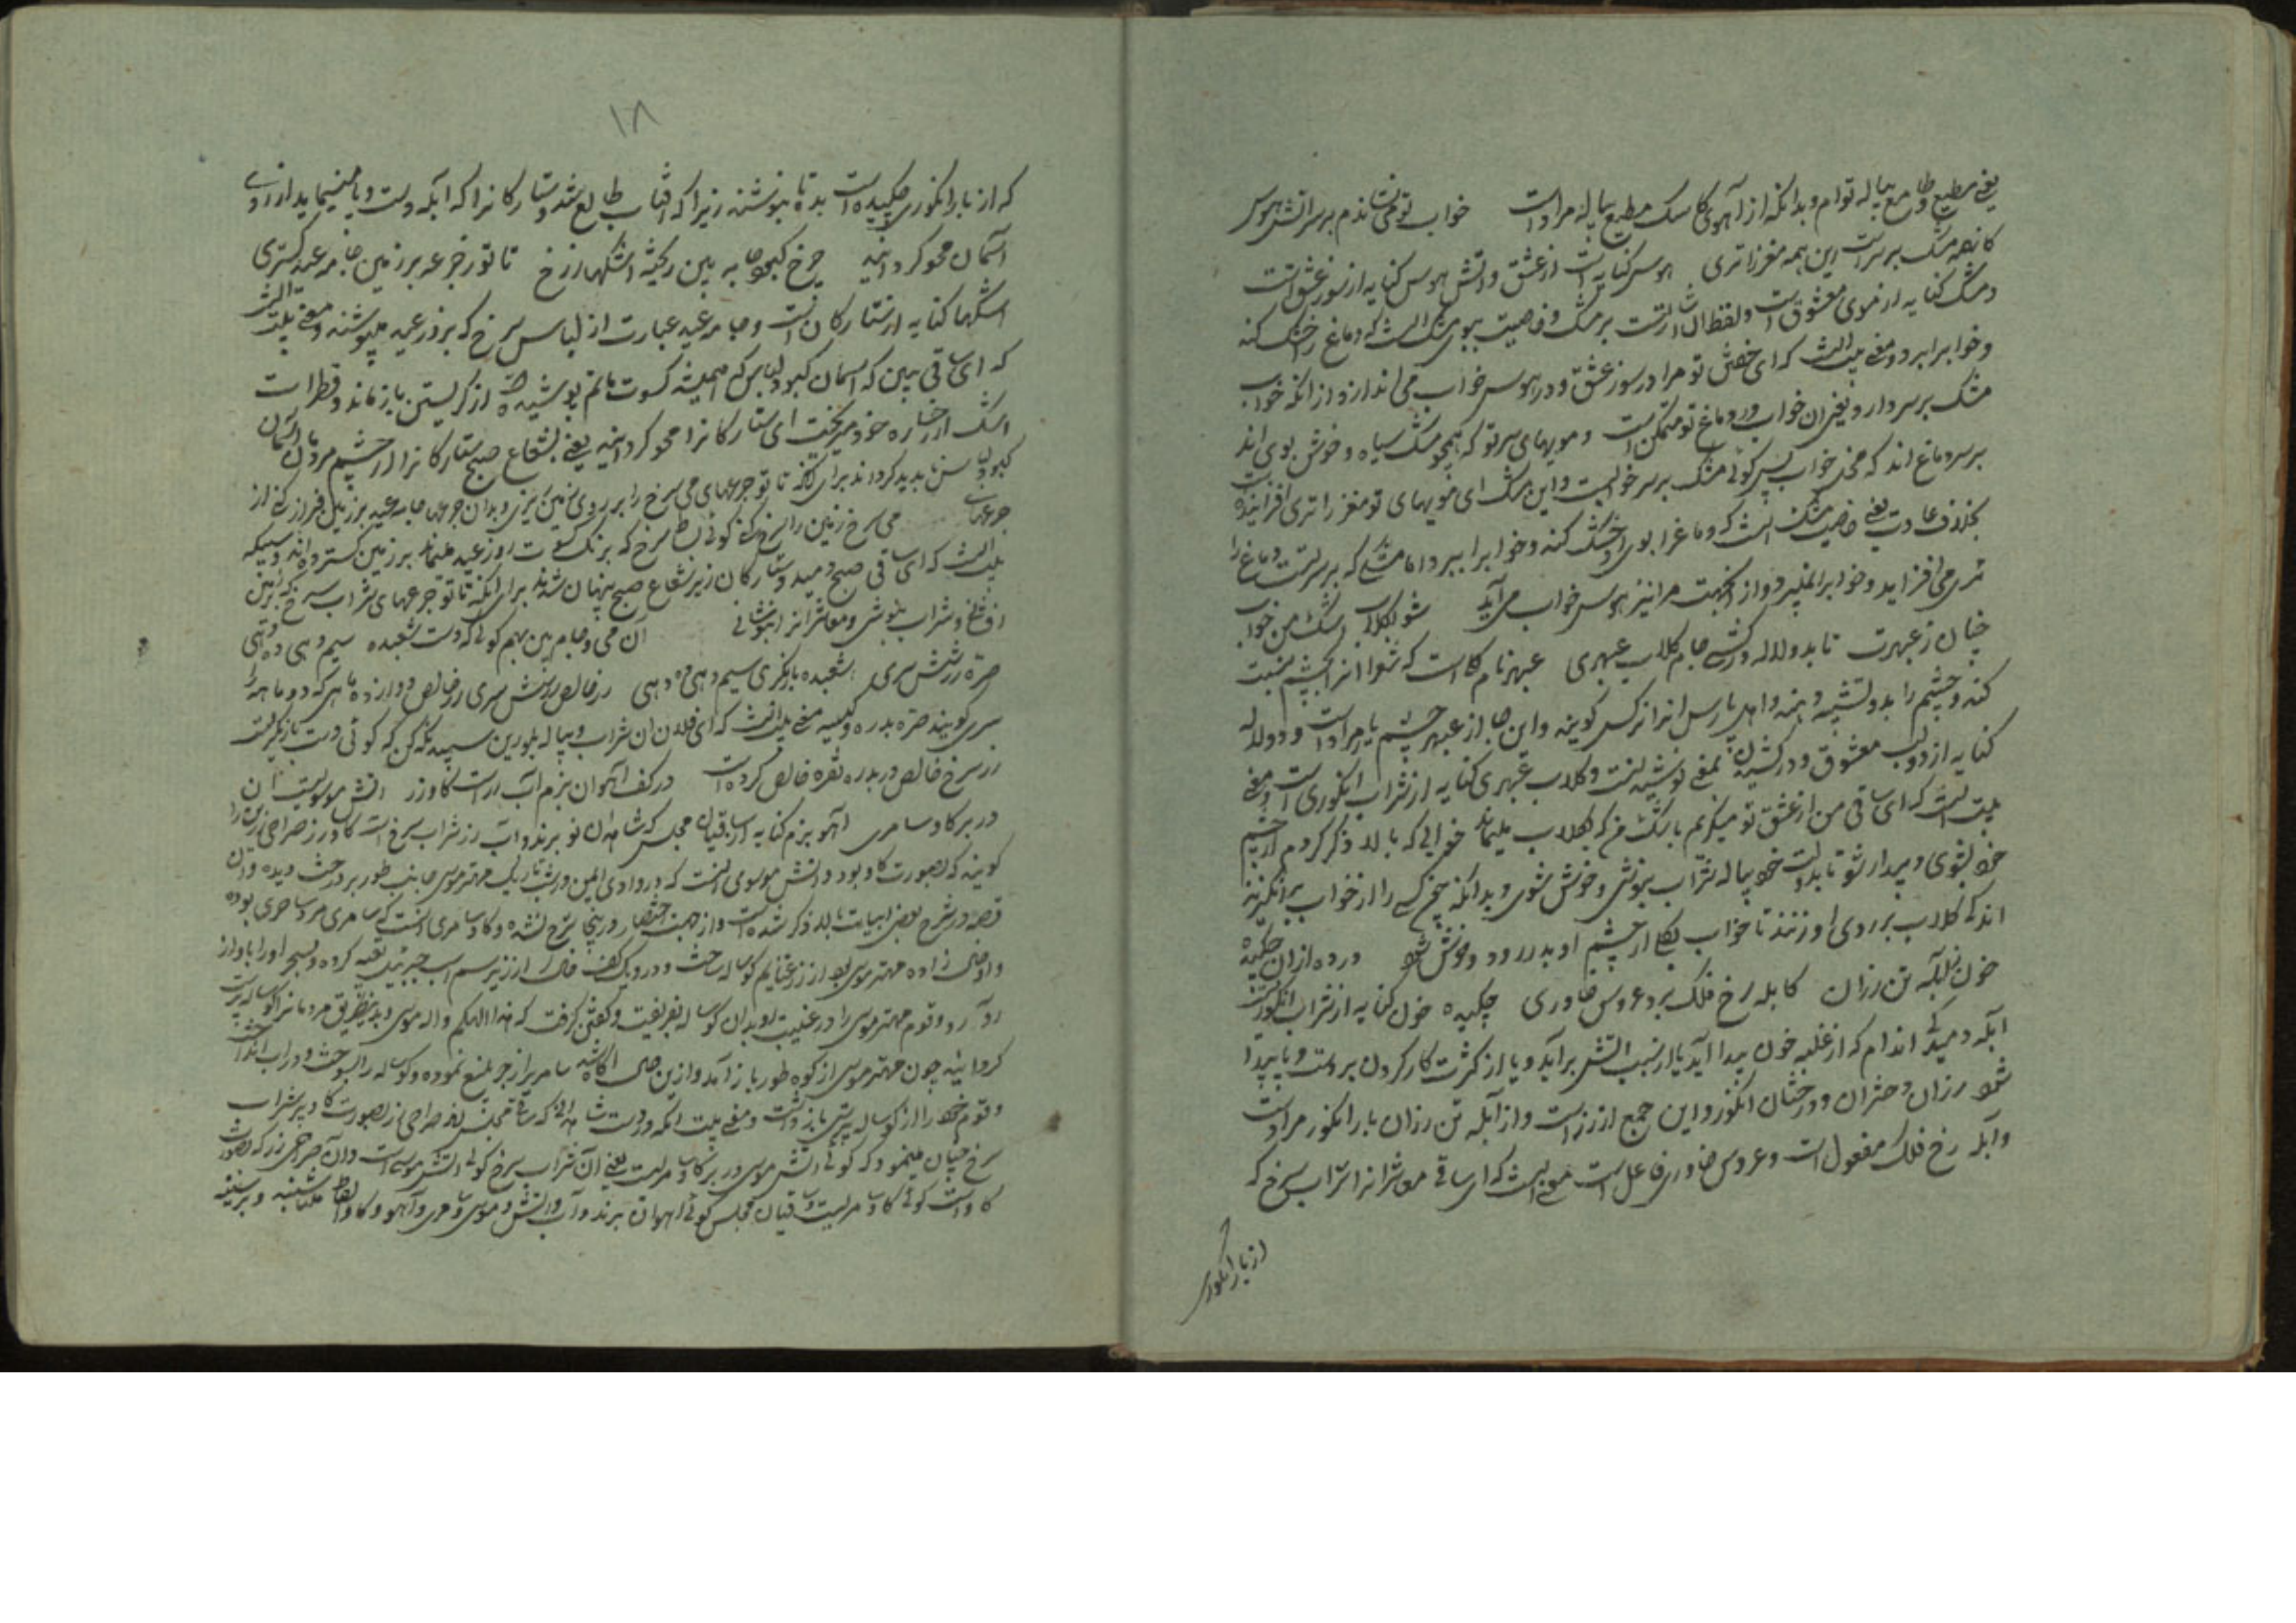 یعنی مطیع و طامع پیاله توام و بدانکه از آهوی کا سک مطیع پیاله مراد است خواب تو می نشاندم بر سر آتش هوس
کانهمه مشک بر سرت این همه مغز را تری هوس کنایه است از عشق و آتش هوس کنایه از سوز عشق است
و مشک کنایه از موی معشوق است و لفظ ان اشارتست بر مشک و خاصیت بوی مشک انست که دماغ را خشک کند
و خواب را برد و معنی بیت انست که ای خفتن تو مرا در سوز عشق و در هوس خواب می اندازد از انکه خواب
مشک بر سر دارد یعنی ان خواب در دماغ تو متمکن است و مویهای سر تو که همچو مشک سیاه و خوش بوی اند
بر سر دماغ اند که مخزن خواب پس گوئی مشک بر سر خوابست و این مشک ای مویهای تو مغز را تری افزاینده
بخلاف عادت یعنی خاصیت مشک انست که دماغ را بوی او خشک کند و خواب را ببرد اما مشکی که بر سر تست دماغ را
تری می افزاید و خواب را نمیبرد و از اینجهت مرا نیز هوس خواب می آید شو بگلاب اشک من خواب
چنان ز عبهرت تا بدو لاله درکشی جام گلاب عبهری عبهر نام گل است که شعرا انرا بچشم نسبت
کنند و چشم را بدو تشبیه دهند و اهل پارس انرا نرگس گویند و این جا از عبهر چشم یار مراد است و دو لاله
کنایه از دو لب معشوق و درکشیدن بمعنی نوشیدنست و گلاب عبهری کنایه از شراب انگوری است و معنی
بیت انست که ای ساقی من از عشق تو میگریم باشک من که بگلاب میماند خوابی که بالا ذکر کردم از چشم
خود بشوی و بیدار شو تا بدو لب خود پیاله شراب بنوشی و خوش شوی و بدانکه چون کسی را از خواب برانگیزند
اندکی گلاب بر روی او زنند تا خواب بکلی از چشم او بدر رود و خوش شود درده ازان چکیده
خون ز آبله تن رزان کابله رخ فلک برد عروس خاوری چکیده خون کنایه از شراب انگور است
آبله دمیدگی اندام که از غلبه خون پیدا آید یا از سبب آتش برآید و یا از کثرت کار کردن بر دست و پا پیدا
شود رزان دختران و درختان انگور و این جمع از رز است و از آبله تن رزان بار انگور مراد است
و آبله رخ فلک مفعول است و عروس خاوری فاعل است معنی بیت انست که ای ساقی معاشرانرا شراب سرخ که
از بار انگوری
۱۸
که از بار انگوری چکیده است بده تا بنوشند زیرا که آفتاب طالع شد و ستارگانرا که آبله دست و پا مینماید از روی
آسمان محو گردانید چرخ کبود جامه بین ریخته اشکها ز رخ تا تو ز جرعه بر زمین جامه عید گستری
اشکها کنایه از ستارگان است و جامه عید عبارت از لباس سرخ که بروز عید میپوشند و معنی بیت انست
که ای ساقی ببین که اسمان کبود لباس که همیشه کسوت ماتم پوشیده از گریستن باز ماند و قطرات
اشک از رخساره خود میریخت ای ستارگانرا محو گردانید یعنی بشعاع صبح ستارگانرا از چشم مردمان آسمان
کبود لباس ناپدید گرداند برای آنکه تا تو جرعهای می سرخ را بر روی زمین ریزی و بدان جرعها جامه عید بر زمین فراز کنی از
جرعهای می سرخ زمین را سرخ کنی گوئی بساط سرخ که برنگ کسوت روز عید میماند بر زمین گسترده اند
بیت انست که ای ساقی صبح دمید و ستارگان زیر شعاع صبح پنهان شدند برای آنکه تا تو جرعهای شراب سرخ که بر زمین
افشانی و شراب بنوشی و معاشرانرا بنوشانی آن می و جام بین بهم گوئی که دست شعبده سیم دهی و ده دهی
صره زرشش سری شعبده بازیگری سیم دهی دهی زر خالص
سری گویند صره بدره و کیسه معنی بیت انست که ای فلان ان شراب و پیاله بلورین سپید نگه کن که گوئی دست بازیگر است
زر سرخ خالص در بدره نقره خالص کرده است در کف آهوان بزم آب رز است گاو زر آتش موسویست ان
در بر گاو سامری آهو بزم کنایه از ساقیان مجلس که شاهدان نو برند و آب رز شراب سرخ است گاو زر صراحی زرین را
گویند که بصورت گاو بود و آتش موسوی انست که در وادی ایمن در شب تاریک مهتر موسی جانب طور بر درخت دیده و آن
قصه در شرح بعض ابیات بالا ذکر شده است و از جهت اختصار در اینجا شرح نشد و گاو سامری انست که سامری مرد ساحری بوده
روآرد و قوم مهتر موسی را در غیبت او بدان گوساله بفریفت و گفتن گرفت که هذا الهکم و اله موسی و بدینطریق مردمانرا گوساله پرست
گردانید چون مهتر موسی از کوه طور باز آمد و ازین حال آگاه شد سامریرا زجر بلیغ نموده و گوساله را بسوخت و در آب انداخت
و قوم خود را از گوساله پرستی باز داشت و معنی بیت انکه
سرخ چنان مینمود که گوئی آتش موسی در بر گاو سامریست یعنی آن شراب سرخ گوئی آتش موسی است و آن صراحی زر که بصورت
گاو است گوئی گاو سامریست و ساقیان مجلس گوئی آهوان برند و آب و آتش و موسی و سامری و آهو و گاو